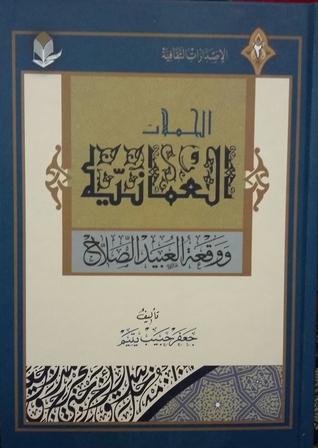 الإصدارات الثقافية
٢
الحملات
العمانية
ووقعة العبيد الصلاح
تأليف
جعفر حبيب يتيم